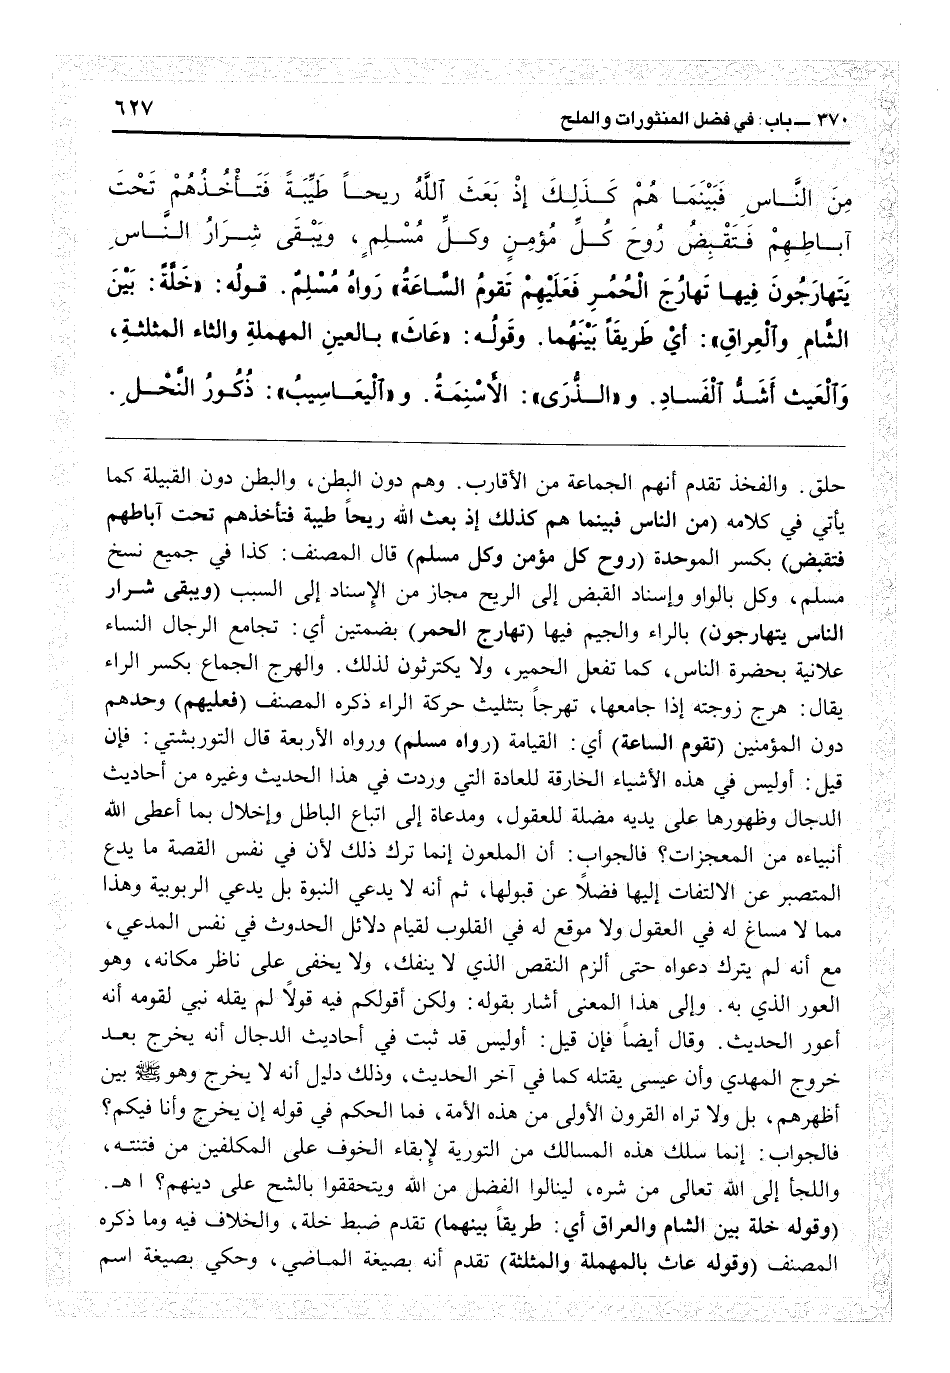 ٣٧٠ ــ باب: في فضل المنثورات والملح
٦٢٧
مِنَ النَّاسِ فَبَيْنَمَا هُمْ كَذَلِكَ إِذْ بَعَثَ اللَّهُ رِيحاً طَيِّبَةً فَتَأْخُذُهُمْ تَحْتَ
آبَاطِهِمْ فَتَقْبِضُ رُوحَ كُلِّ مُؤْمِنٍ وكلِّ مُسْلِمٍ، ويَبْقَى شِرَارُ النَّاسِ
يَتَهارَجُونَ فِيهَا تَهارُجَ الْحُمُرِ فَعَلَيْهِمْ تَقومُ السَّاعَةُ» رَواهُ مُسْلِمٌ. قولُه: «خَلَّةً: بَيْنَ
الشَّامِ والْعِراقِ»: أيْ طَرِيقَاً بَيْنَهُما. وقَولُه: «عَاثَ» بالعينِ المهملةِ والثاءِ المثلثةِ،
وَالْعَيث أَشَدُّ الْفَسادِ. و«الذُّرَى»: الأَسْنِمَةُ. و«الْيعَاسِيبُ»: ذُكُورُ النَّحْلِ.
حلق. والفخذ تقدم أنهم الجماعة من الأقارب. وهم دون البطن، والبطن دون القبيلة كما
يأتي في كلامه (من الناس فبينما هم كذلك إذ بعث الله ريحاً طيبة فتأخذهم تحت آباطهم
فتقبض) بكسر الموحدة (روح كل مؤمن وكل مسلم) قال المصنف: كذا في جميع نسخ
مسلم، وكل بالواو وإسناد القبض إلى الريح مجاز من الإسناد إلى السبب (ويبقى شرار
الناس يتهارجون) بالراء والجيم فيها (تهارج الحمر) بضمتين أي: تجامع الرجال النساء
علانية بحضرة الناس، كما تفعل الحمير، ولا يكترثون لذلك. والهرج الجماع بكسر الراء
يقال: هرج زوجته إذا جامعها، تهرجاً بتثليث حركة الراء ذكره المصنف (فعليهم) وحدهم
دون المؤمنين (تقوم الساعة) أي: القيامة (رواه مسلم) ورواه الأربعة قال التوربشتي: فإن
قيل: أوليس في هذه الأشياء الخارقة للعادة التي وردت في هذا الحديث وغيره من أحاديث
الدجال وظهورها على يديه مضلة للعقول، ومدعاة إلى اتباع الباطل وإخلال بما أعطى الله
أنبياءه من المعجزات؟ فالجواب: أن الملعون إنما ترك ذلك لأن في نفس القصة ما يدع
المتصبر عن الالتفات إليها فضلاً عن قبولها، ثم أنه لا يدعي النبوة بل يدعي الربوبية وهذا
مما لا مساغ له في العقول ولا موقع له في القلوب لقيام دلائل الحدوث في نفس المدعي،
مع أنه لم يترك دعواه حتى ألزم النقص الذي لا ينفك، ولا يخفى على ناظر مكانه، وهو
العور الذي به. وإلى هذا المعنى أشار بقوله: ولكن أقولكم فيه قولاً لم يقله نبي لقومه أنه
أعور الحديث. وقال أيضاً فإن قيل: أوليس قد ثبت في أحاديث الدجال أنه يخرج بعد
خروج المهدي وأن عيسى يقتله كما في آخر الحديث، وذلك دليل أنه لا يخرج وهو ﷺ بين
أظهرهم، بل ولا تراه القرون الأولى من هذه الأمة، فما الحكم في قوله إن يخرج وأنا فيكم؟
فالجواب: إنما سلك هذه المسالك من التورية لإبقاء الخوف على المكلفين من فتنته،
واللجأ إلى الله تعالى من شره، لينالوا الفضل من الله ويتحققوا بالشح على دينهم؟ اهـ.
(وقوله خلة بين الشام والعراق أي: طريقاً بينهما) تقدم ضبط خلة، والخلاف فيه وما ذكره
المصنف (وقوله عاث بالمهملة والمثلثة) تقدم أنه بصيغة الماضي، وحكي بصيغة اسم